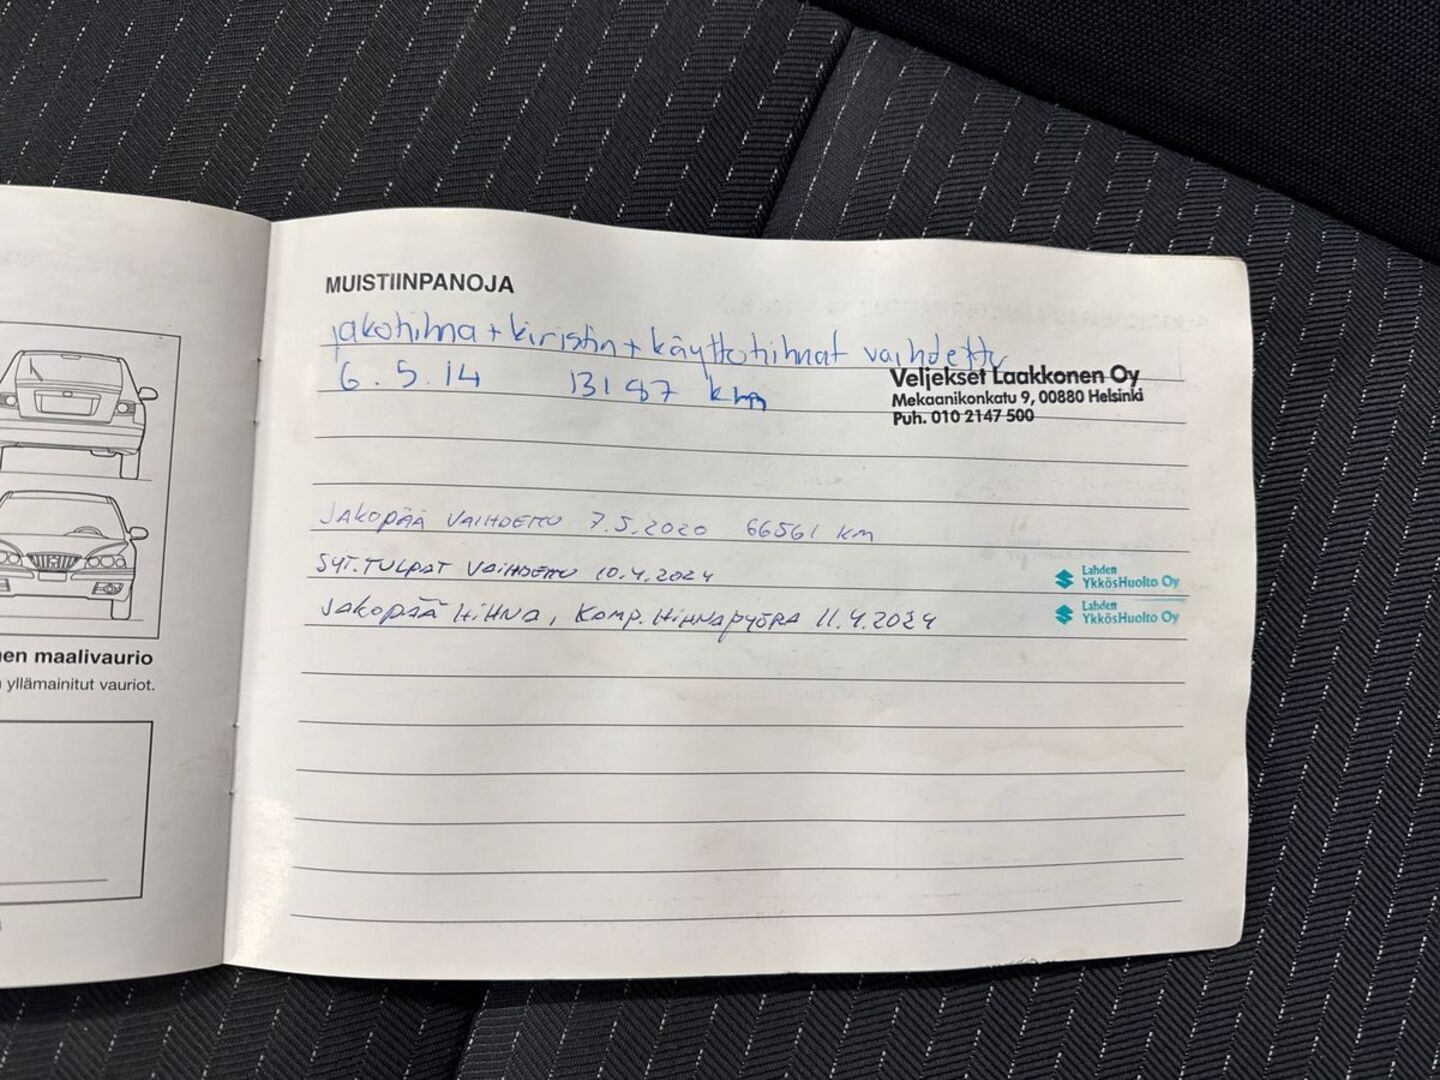 MUISTIINPANOJA
jakohihna + kiristin + käyttöhihnat vaihdettu
6.5.14 13187 km
Veljekset Laakkonen Oy
Mekaanikonkatu 9, 00880 Helsinki
Puh. 010 2147 500
JAKOPÄÄ VAIHDETTU 7.5.2020 66561 KM
SYT.TULPAT VAIHDETTU 10.4.2024
Lahden
YkkösHuolto Oy
JAKOPÄÄ HIHNA, KOMP. HIHNAPYÖRÄ 11.4.2024
Lahden
YkkösHuolto Oy
en maalivaurio
yllämainitut vauriot.